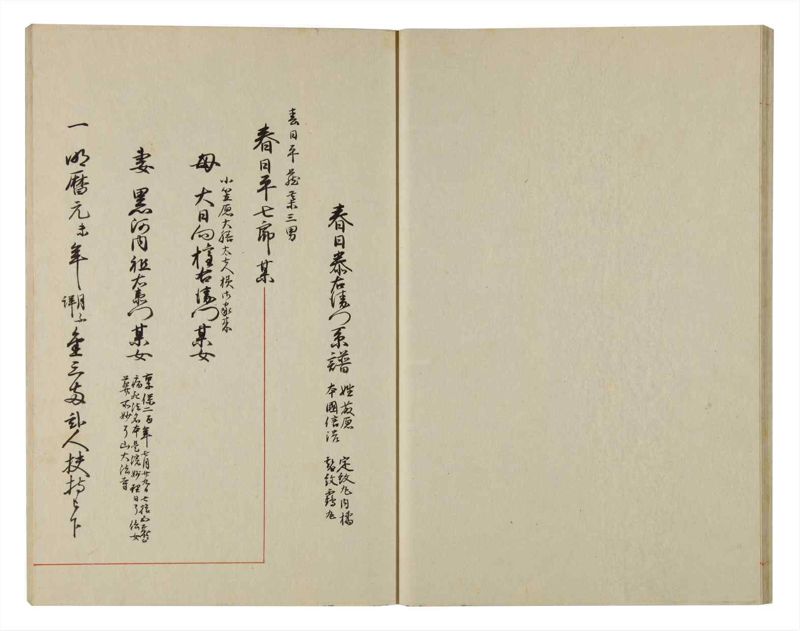 春日泰右衛門系譜
姓藤原
本國信濃
定紋丸内橘
替紋霞丸
春日平蔵某三男
春日平七郎某
小笠原大膳太夫様御家来
母 大日向権右衛門某女
妻 黒河内祖右衛門某女
享保二酉年七月廿九日七拾五歳
病死法名本是院妙理日了信女
葬所妙了山大法寺
一 明暦元未年月不詳金三両弐人扶持被下